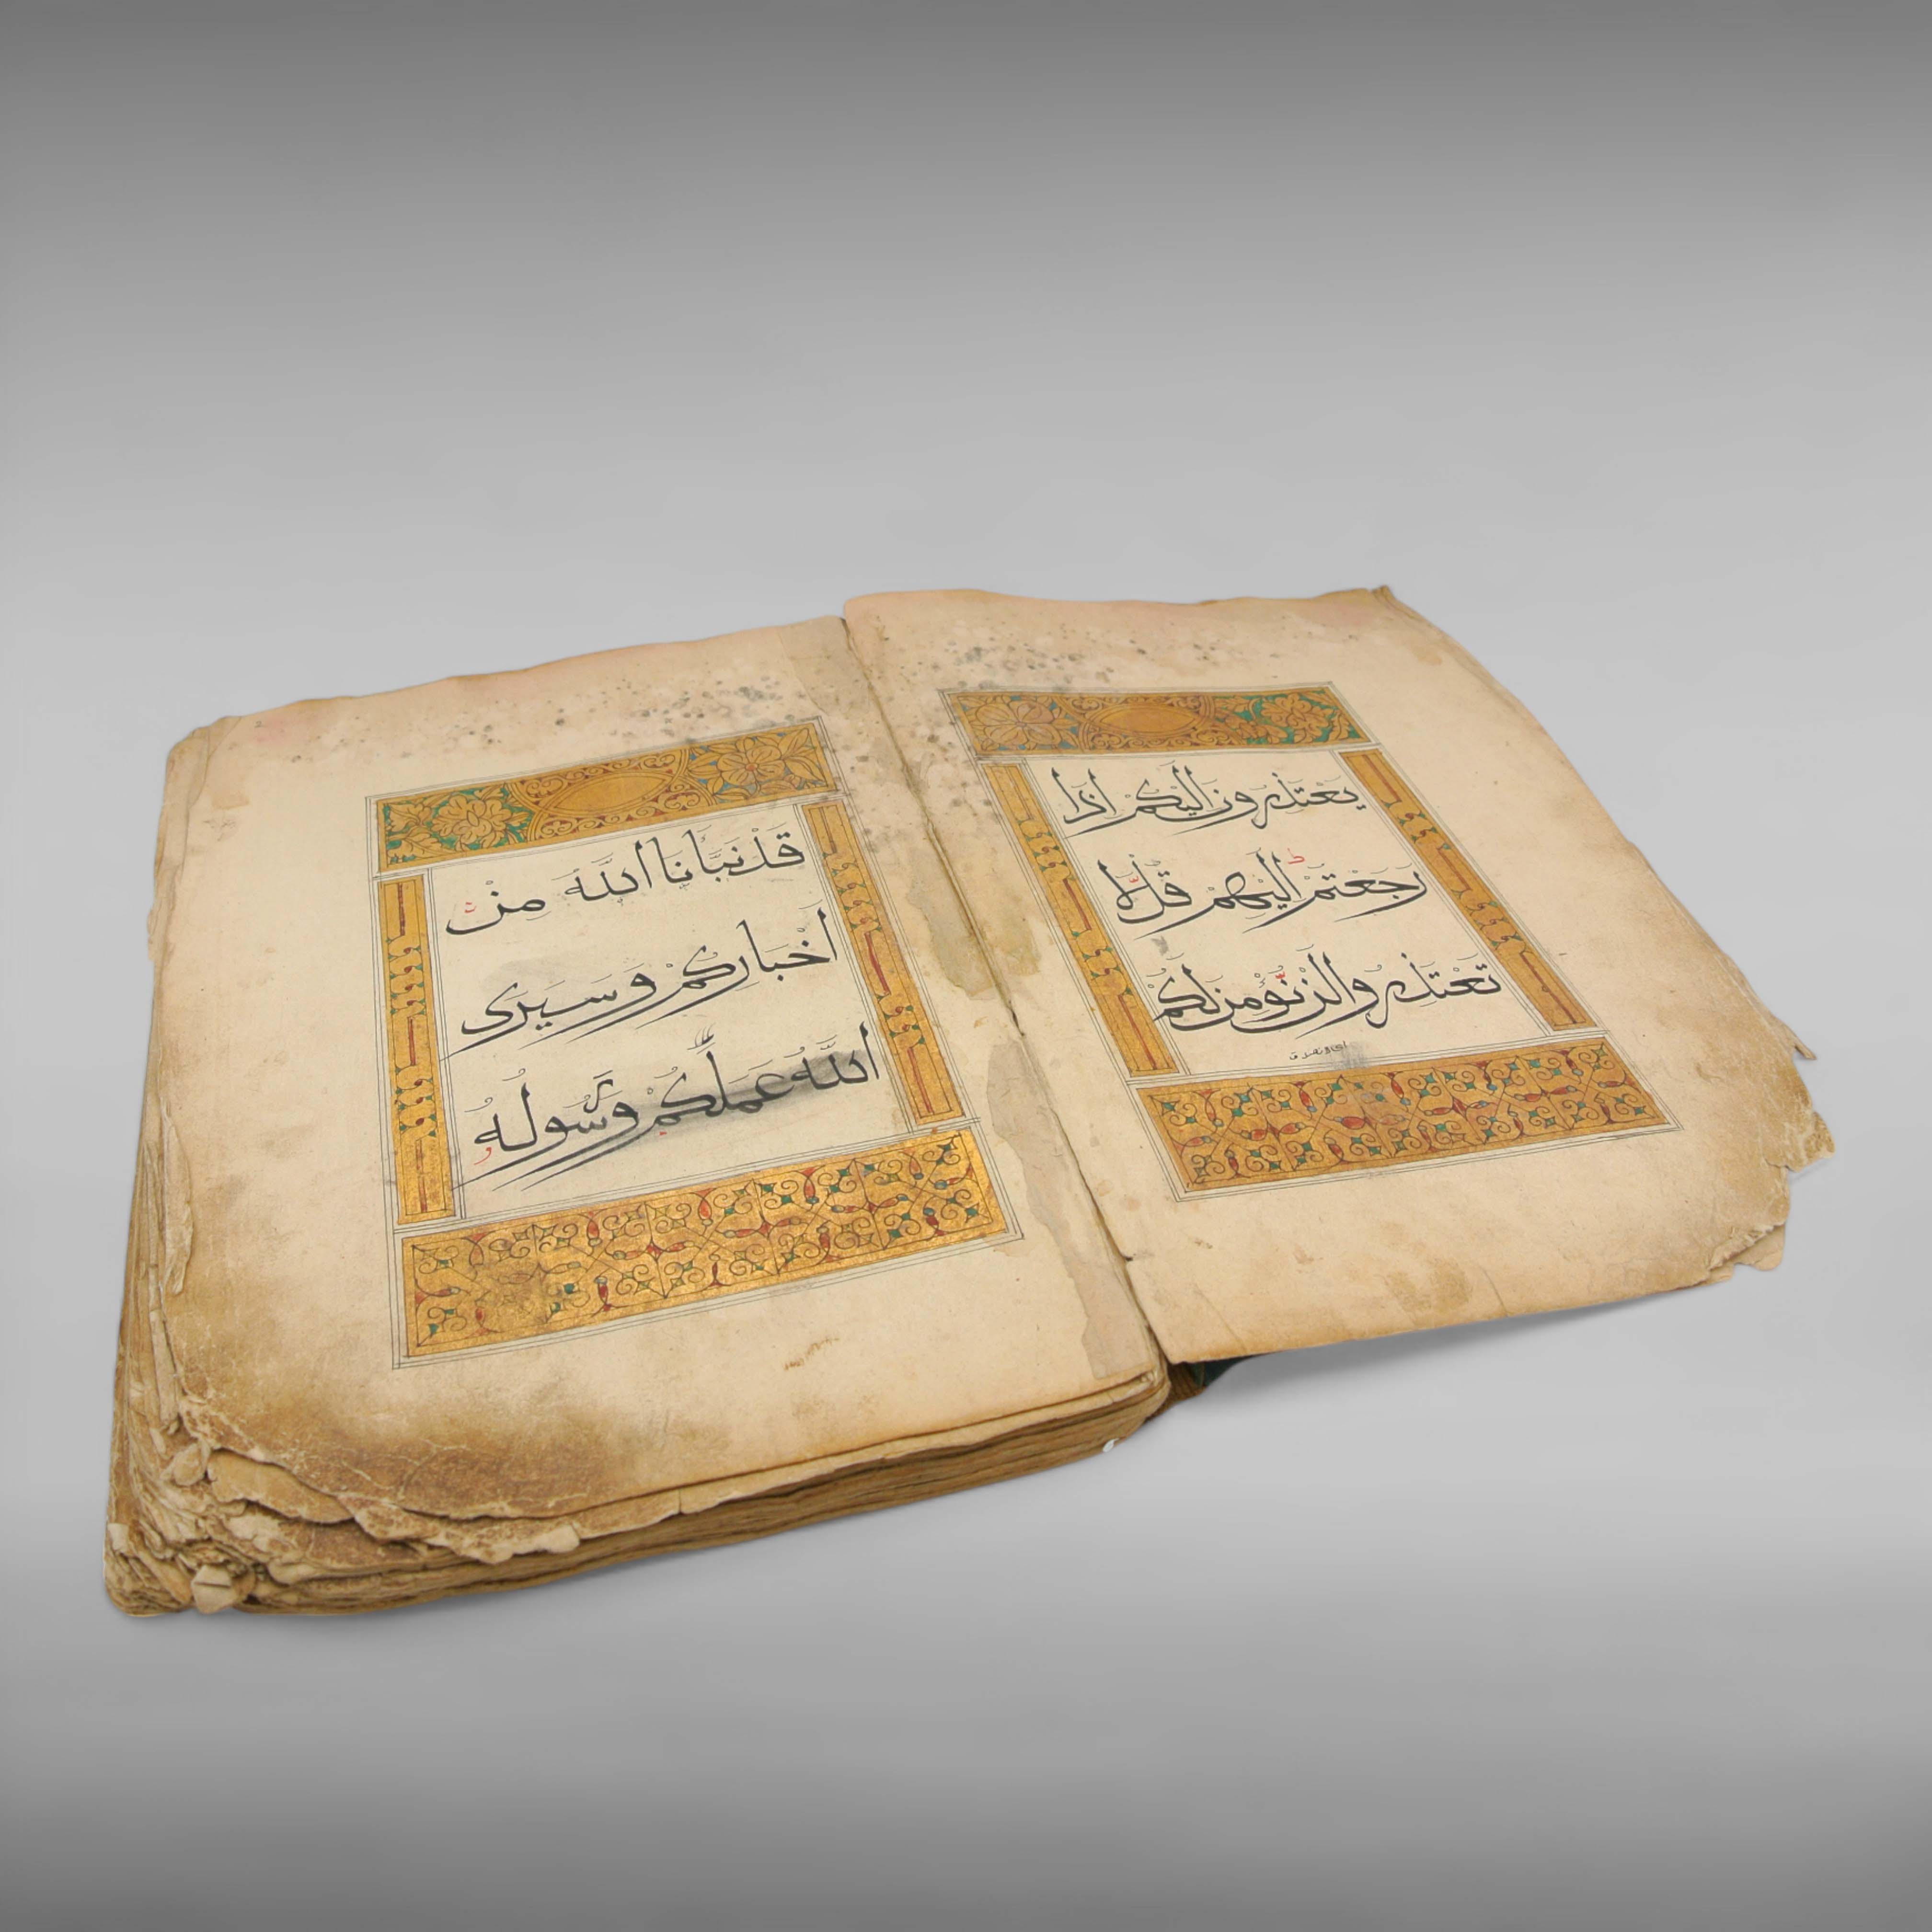 يَعْتَذِرُونَ اِلَيْكُمْ اِذَا
رَجَعْتُمْ اِلَيْهِمْ قُلْ لَا
تَعْتَذِرُوا لَنْ نُؤْمِنَ لَكُمْ
قَدْ نَبَّأَنَا اللَّهُ مِنْ
اَخْبَارِكُمْ وَسَيَرَى
اللَّهُ عَمَلَكُمْ وَرَسُولُهُ